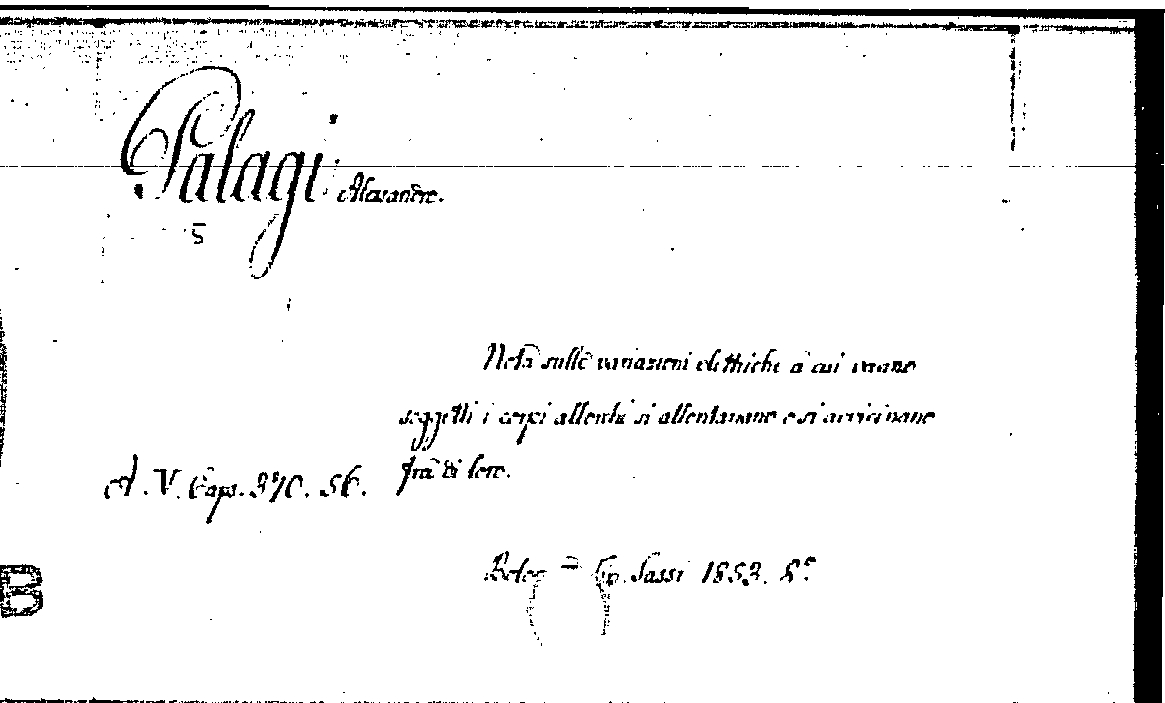 Palagi Alessandro.
5
Nota sulle variazioni elettriche a cui vanno
soggetti i corpi allorchè si allontanano e si avvicinano
fra di loro.
A. V. Caps. 370. 56.
Bolog = Tip. Sassi 1853. 8°.
B